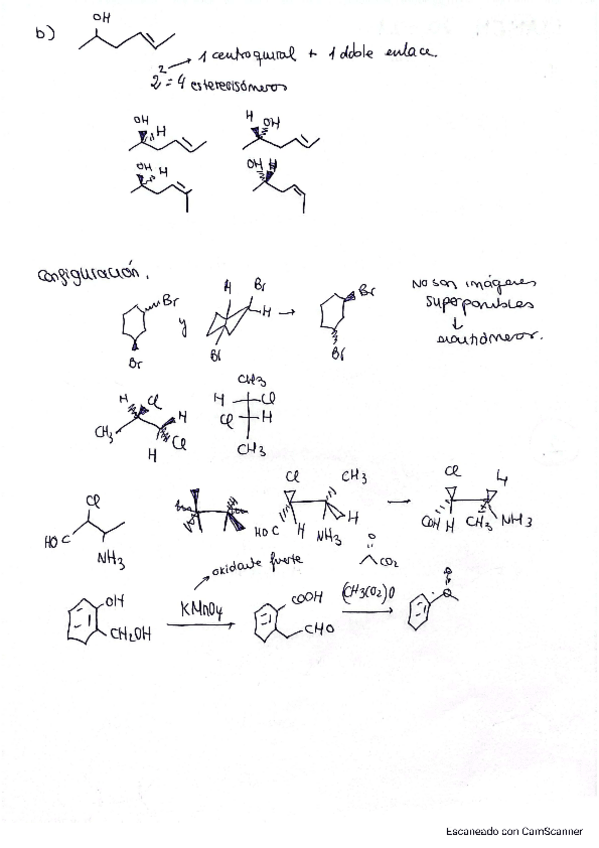 OH
b)
1 centroquiral + 1 doble enlace.
2² = 4 estereoisómeros
OH H H OH
OH H OH H
configuración.
Br y H Br H → Br No son imágenes
superponibles
↓
Br Br Br enantiómeros.
CH3
H Cl H H Cl
CH3 Cl Cl H
H CH3
Cl CH3 Cl
Cl
HO C HO C H NH3 H → COH H CH3 NH3
NH3
oxidante fuerte CO2
OH KMnO4 COOH (CH3CO2)O
CH2OH CHO
Escaneado con CamScanner